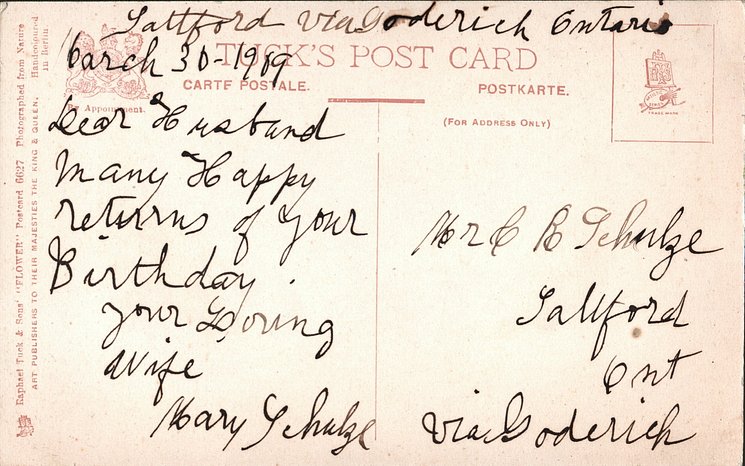 Saltford via Goderich Ontario
March 30-1909
TUCK'S POST CARD
CARTE POSTALE.
POSTKARTE.
By Appointment.
(FOR ADDRESS ONLY)
TRADE MARK
Dear Husband
Many Happy
returns of your
Birthday.
your Loving
Wife
Mary Schulze
Mr C B Schulze
Saltford
Ont
via Goderich
Raphael Tuck & Sons' "FLOWER" Postcard 6627 Photographed from Nature
Handcoloured
in Berlin
ART PUBLISHERS TO THEIR MAJESTIES THE KING & QUEEN.